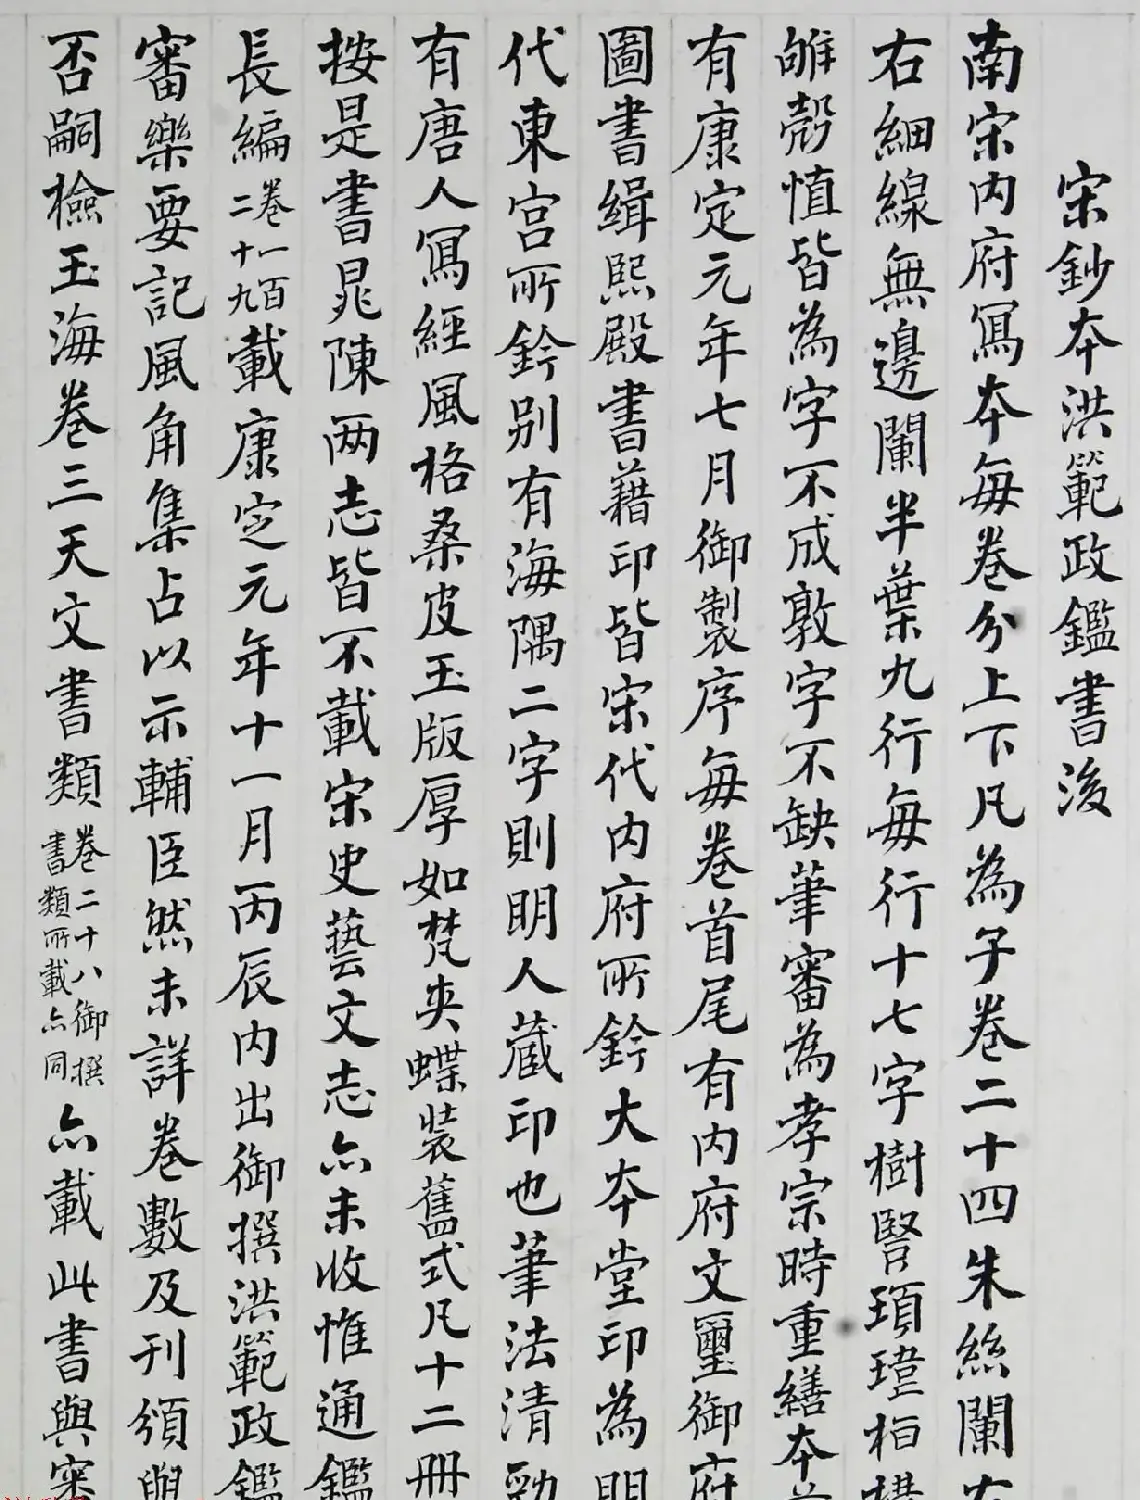 宋鈔本洪範政鑑書後
南宋内府寫本每卷分上下凡為子卷二十四朱絲闌左
右細線無邊闌半葉九行每行十七字樹豎頊瑋桓構
雊殼慎皆為字不成敦字不缺筆審為孝宗時重繕本首
有康定元年七月御製序每卷首尾有内府文璽御府
圖書緝熙殿書籍印皆宋代内府所鈐大本堂印為明
代東宫所鈐别有海隅二字則明人藏印也筆法清勁
有唐人寫經風格桑皮玉版厚如梵夾蝶裝舊式凡十二冊
按是書晁陳兩志皆不載宋史藝文志亦未收惟通鑑
長編卷一百二十九載康定元年十一月丙辰内出御撰洪範政鑑
審樂要記風角集占以示輔臣然未詳卷數及刊頒與
否嗣檢玉海卷三天文書類卷二十八御撰書類所載亦同亦載此書與審